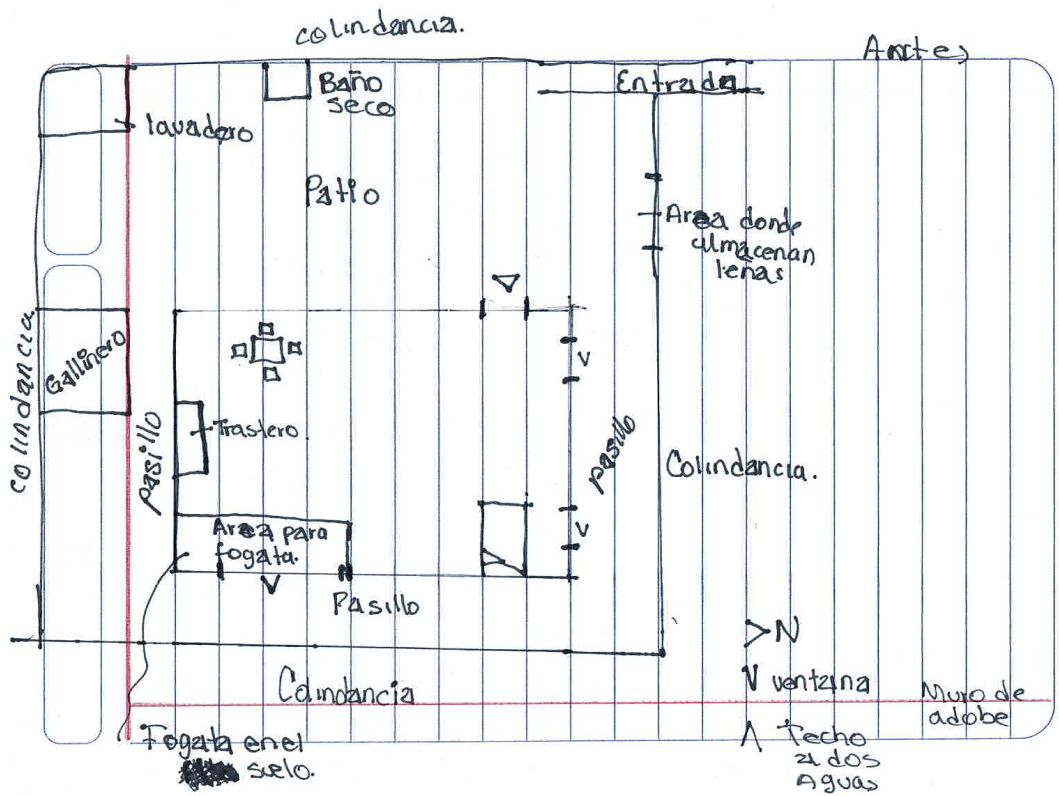 colindancia.
Antes
Baño
seco
Entrada
lavadero
Patio
Area donde
almacenan
leñas
colindancia
Gallinero
pasillo
Trastero
pasillo
Colindancia.
V
V
Area para
fogata.
V
Pasillo
N
V ventana
Colindancia
Muro de
adobe
Fogata en el
suelo.
Techo
a dos
Aguas